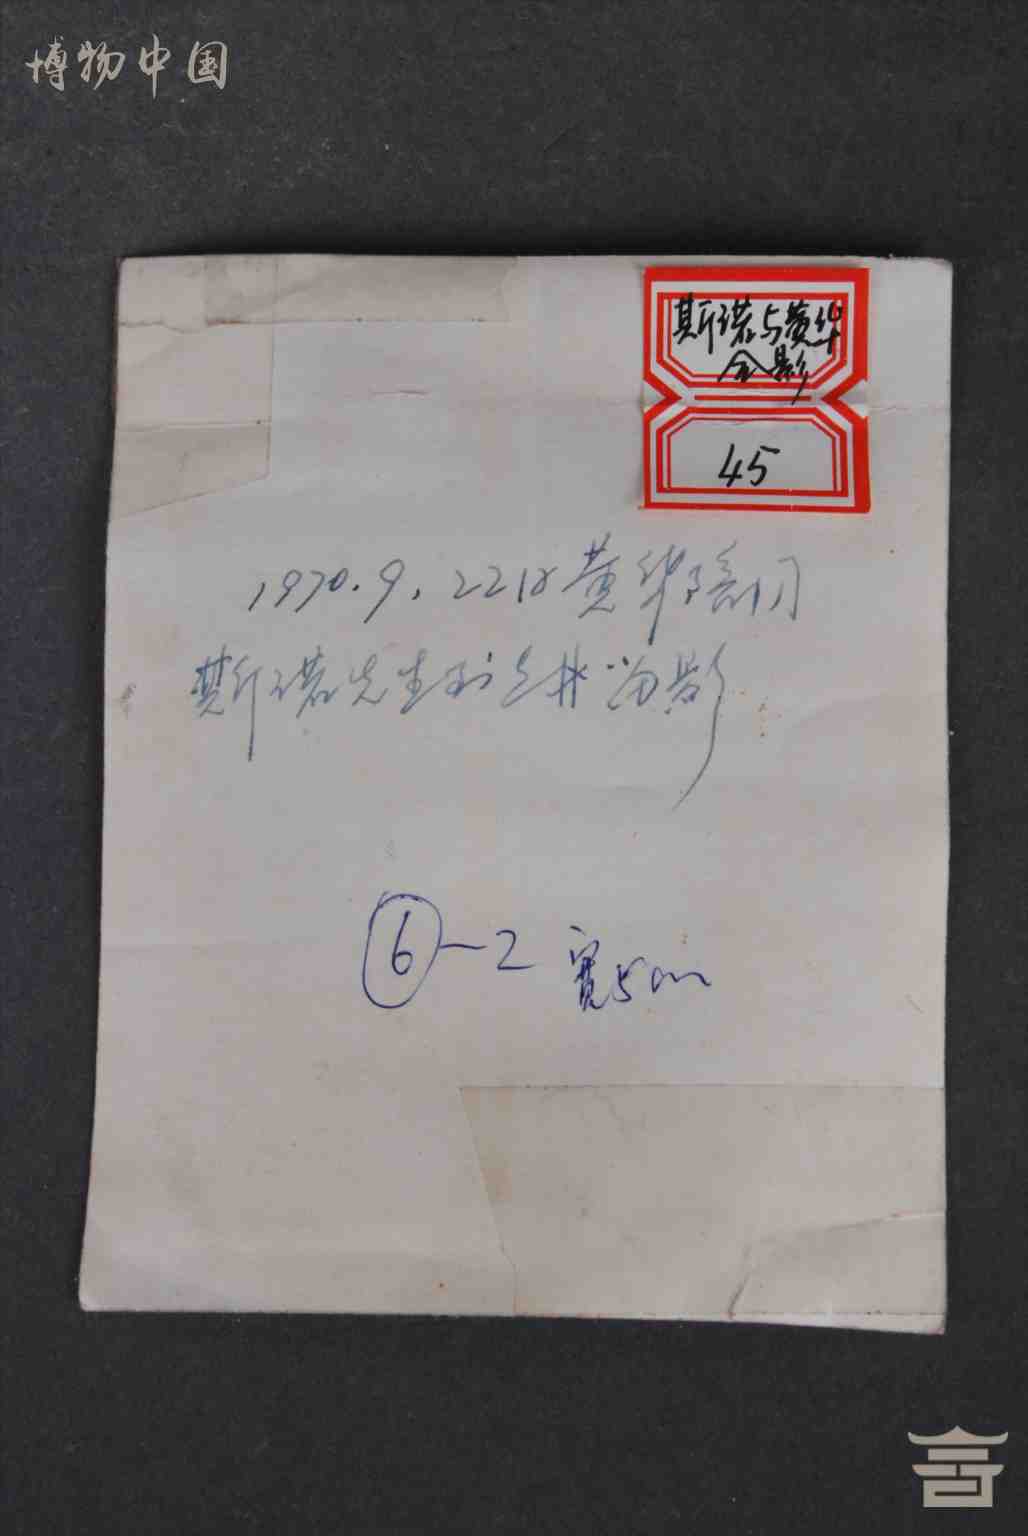 博物中国
斯诺与黄华
合影
45
1970.9.22日黄华陪同
斯诺先生 留影
⑥-2 宽5cm